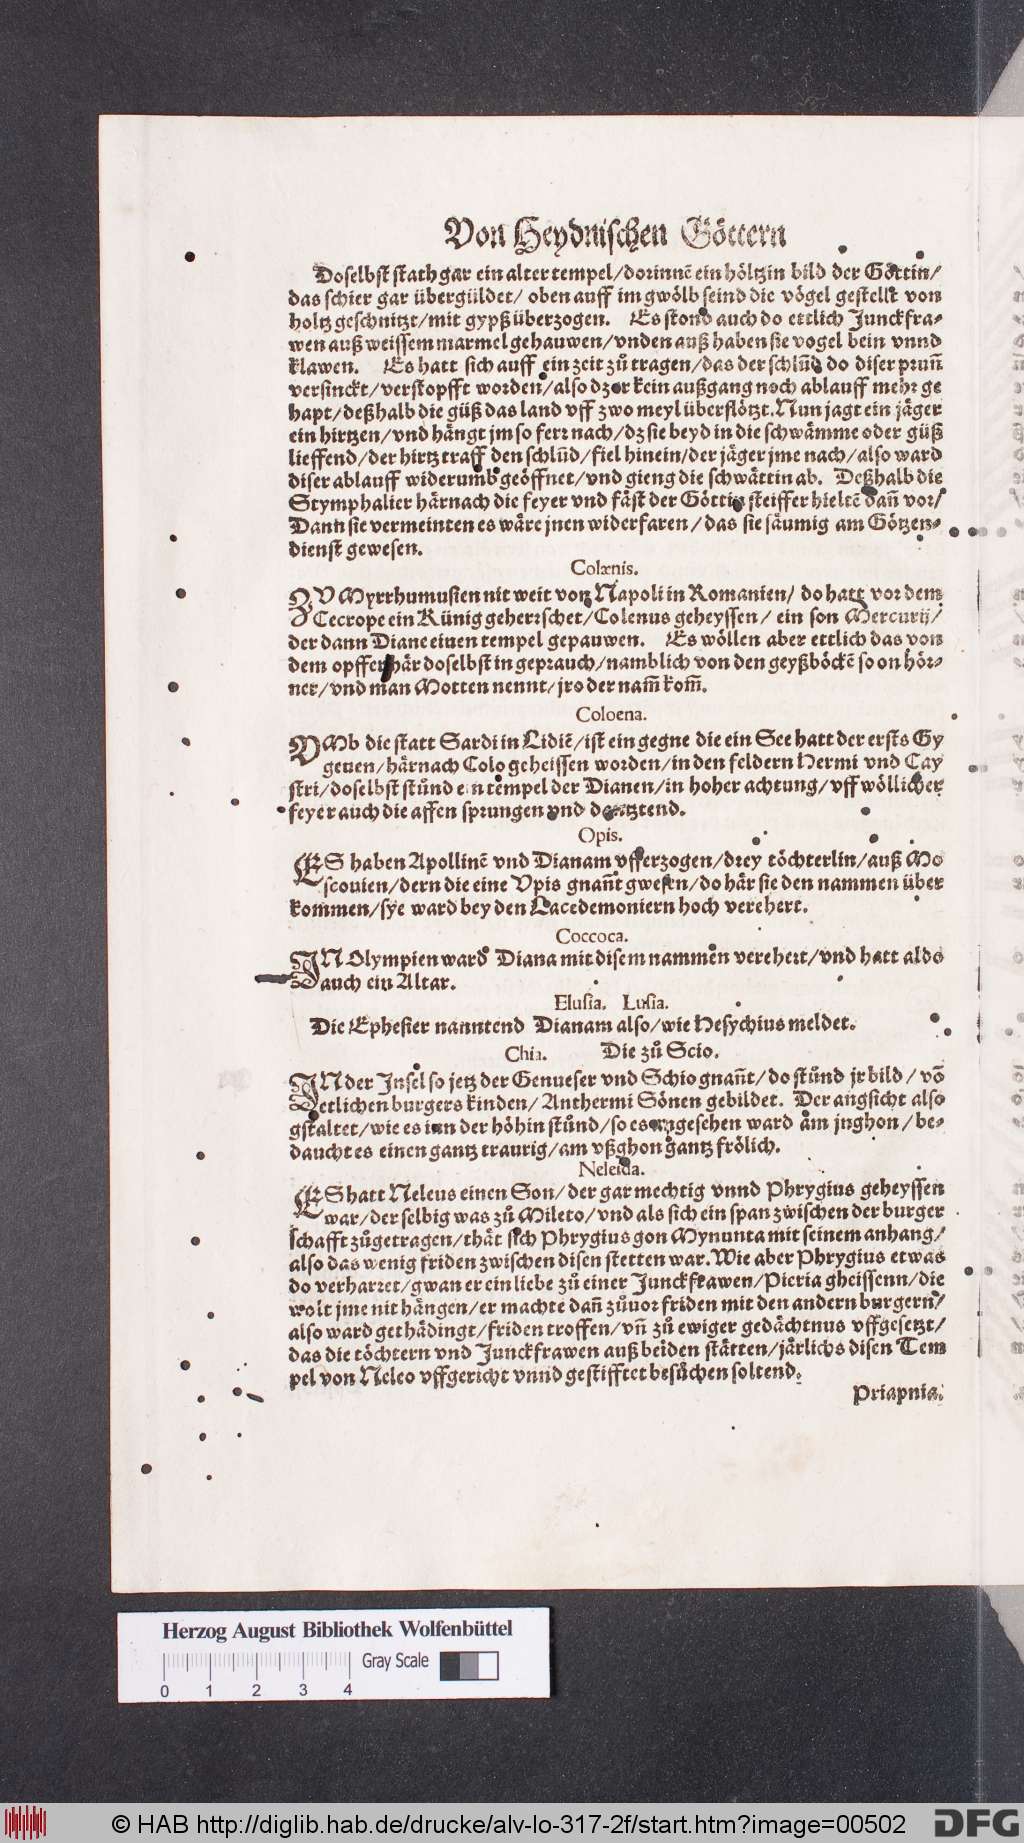 Von Heydnischen Göttern
Doselbst stath gar ein alter tempel/dorinnẽ ein höltzin bild der Göttin/
das schier gar übergüldet/ oben auff im gwölb seind die vögel gestellt von
holtz geschnitzt/mit gypß überzogen. Es stond auch do ettlich Junckfra-
wen auß weissem marmel gehauwen/vnden auß haben sie vogel bein vnnd
klawen. Es hatt sich auff ein zeit zů tragen/das der schlũd do diser pruñ
versinckt/verstopfft worden/also dz er kein außgang noch ablauff mehr ge
hapt/deßhalb die güß das land vff zwo meyl überflötzt. Nun jagt ein jäger
ein hirtzen/vnd hängt jm so ferr nach/dz sie beyd in die schwämme oder güß
lieffend/der hirtz traff den schlũd/fiel hinein/der jäger jme nach/also ward
diser ablauff widerumb geöffnet/vnd gieng die schwättin ab. Deßhalb die
Stymphalier härnach die feyer vnd fäst der Göttin steiffer hieltẽ dañ vor/
Dann sie vermeinten es wäre jnen widerfaren/das sie säumig am Götzen-
dienst gewesen.
Colænis.
ZV Myrrhumusien nit weit von Napoli in Romanien/ do hatt vor dem
Cecrope ein Künig geherrschet/Colenus geheyssen/ ein son Mercurij/
der dann Diane einen tempel gepauwen. Es wöllen aber ettlich das von
dem opffer här doselbst in geprauch/namblich von den geyßböckẽ so on hör-
ner/vnd man Motten nennt/jro der nam̃ kom̃.
Coloena.
VMb die statt Sardi in Lidiẽ/ist ein gegne die ein See hatt der ersts Gy
geuen/härnach Colo geheissen worden/in den feldern Hermi vnd Cay
stri/doselbst stůnd ein tempel der Dianen/in hoher achtung/vff wöllicher
feyer auch die affen sprungen vnd dantztend.
Opis.
ES haben Apollinẽ vnd Dianam vfferzogen/drey töchterlin/auß Mo
scouien/dern die eine Vpis gnañt gwesen/do här sie den nammen über
kommen/sye ward bey den Lacedemoniern hoch verehert.
Coccoca.
IN Olympien ward Diana mit disem nammen verehert/vnd hatt aldo
auch ein Altar.
Elusia. Lusia.
Die Ephesier nanntend Dianam also/wie Hesychius meldet.
Chia. Die zů Scio.
IN der Insel so jetz der Genueser vnd Schio gnañt/do stůnd jr bild/ võ
etlichen burgers kinden/Anthermi Sönen gebildet. Der angsicht also
gstaltet/wie es inn der höhin stůnd/so es angesehen ward am jnghon/be-
daucht es einen gantz traurig/am vßghon gantz frölich.
Neleida.
ES hatt Neleus einen Son/der gar mechtig vnnd Phrygius geheyssen
war/der selbig was zů Mileto/vnd als sich ein span zwischen der burger
schafft zůgetragen/thät sich Phrygius gon Mynunta mit seinem anhang/
also das wenig friden zwischen disen stetten war. Wie aber Phrygius etwas
do verharret/gwan er ein liebe zů einer Junckfrawen/Pieria gheissenn/die
wolt jme nit hängen/er machte dañ zůuor friden mit den andern burgern/
also ward gethädingt/friden troffen/vñ zů ewiger gedächtnus vffgesetzt/
das die töchtern vnd Junckfrawen auß beiden stätten/järlichs disen Tem
pel von Neleo vffgericht vnnd gestifftet besůchen soltend.
Priapnia.
Herzog August Bibliothek Wolfenbüttel
Gray Scale
0 1 2 3 4
© HAB http://diglib.hab.de/drucke/alv-lo-317-2f/start.htm?image=00502
DFG